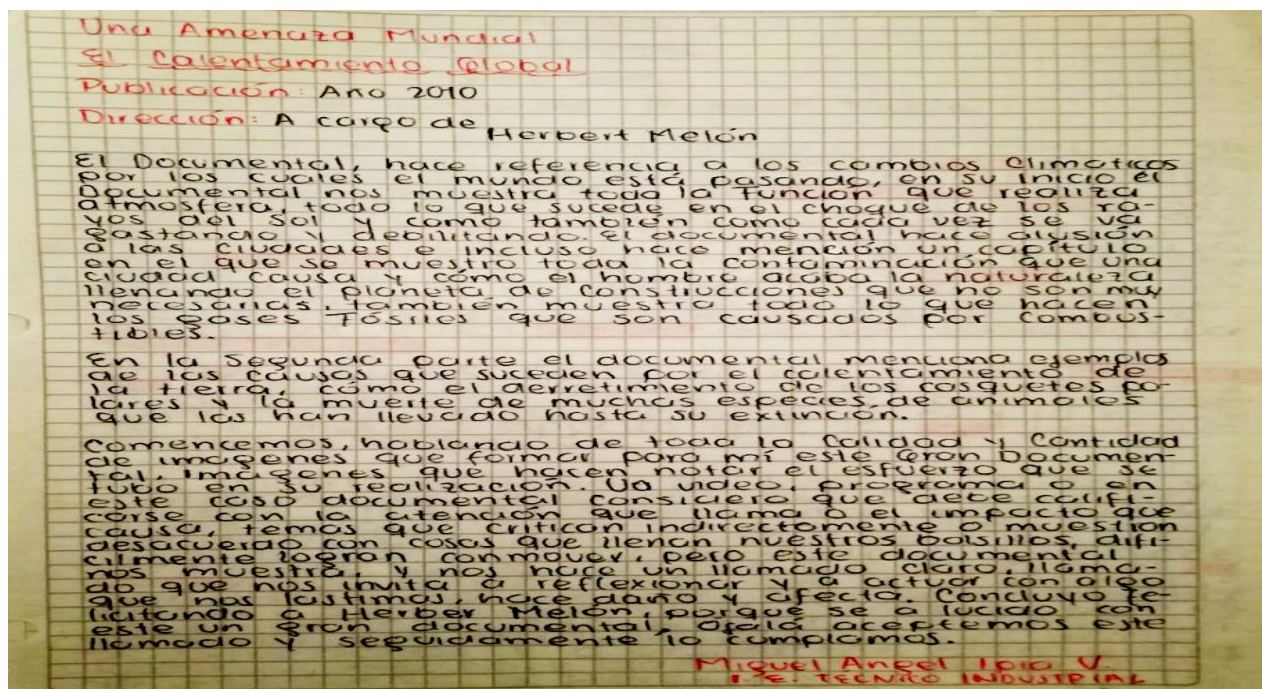 Una Amenaza Mundial
El Calentamiento Global
Publicación: Año 2010
Dirección: A cargo de Herbert Melón
El Documental, hace referencia a los cambios climaticos
por los cuales el mundo está pasando, en su inicio el
Documental nos muestra toda la función que realiza
atmosfera, todo lo que sucede en el choque de los ra-
yos del sol y como también como cada vez se va
gastando y debilitando. El documental hace alusión
a las ciudades e incluso hace mención un capítulo
en el que se muestra toda la contaminación que una
ciudad causa y cómo el hombre acaba la naturaleza
llenando el planeta de construcciones que no son muy
necesarias. también muestra todo lo que hacen
los gases Fósiles que son causados por combus-
tibles.
En la segunda parte el documental menciona ejemplos
de las causas que suceden por el calentamiento de
la tierra, cómo el derretimiento de los casquetes po-
lares y la muerte de muchas especies de animales
que las han llevado hasta su extinción.
Comencemos, hablando de toda la Calidad y Cantidad
de imagenes que forman para mí este Gran Documen-
tal, imagenes que hacen notar el esfuerzo que se
tubo en su realización. Un video, programa o en
este caso documental considero que debe califi-
carse con la atención que llama o el impacto que
causa, temas que critican indirectamente o muestran
desacuerdo con cosas que llenan nuestros bolsillos, difi-
cilmente logran conmover, pero este documental
nos muestra, y nos hace un llamado claro, llama-
do que nos invita a reflexionar y a actuar con algo
que nos lastima, hace daño y afecta. Concluyo fe-
licitando a Herber Melón, porque se a lucido con
este un gran documental, ojala aceptemos este
llamado y seguidamente lo cumplamos.
Miguel Angel Ipia V.
I.E. TECNICO INDUSTRIAL